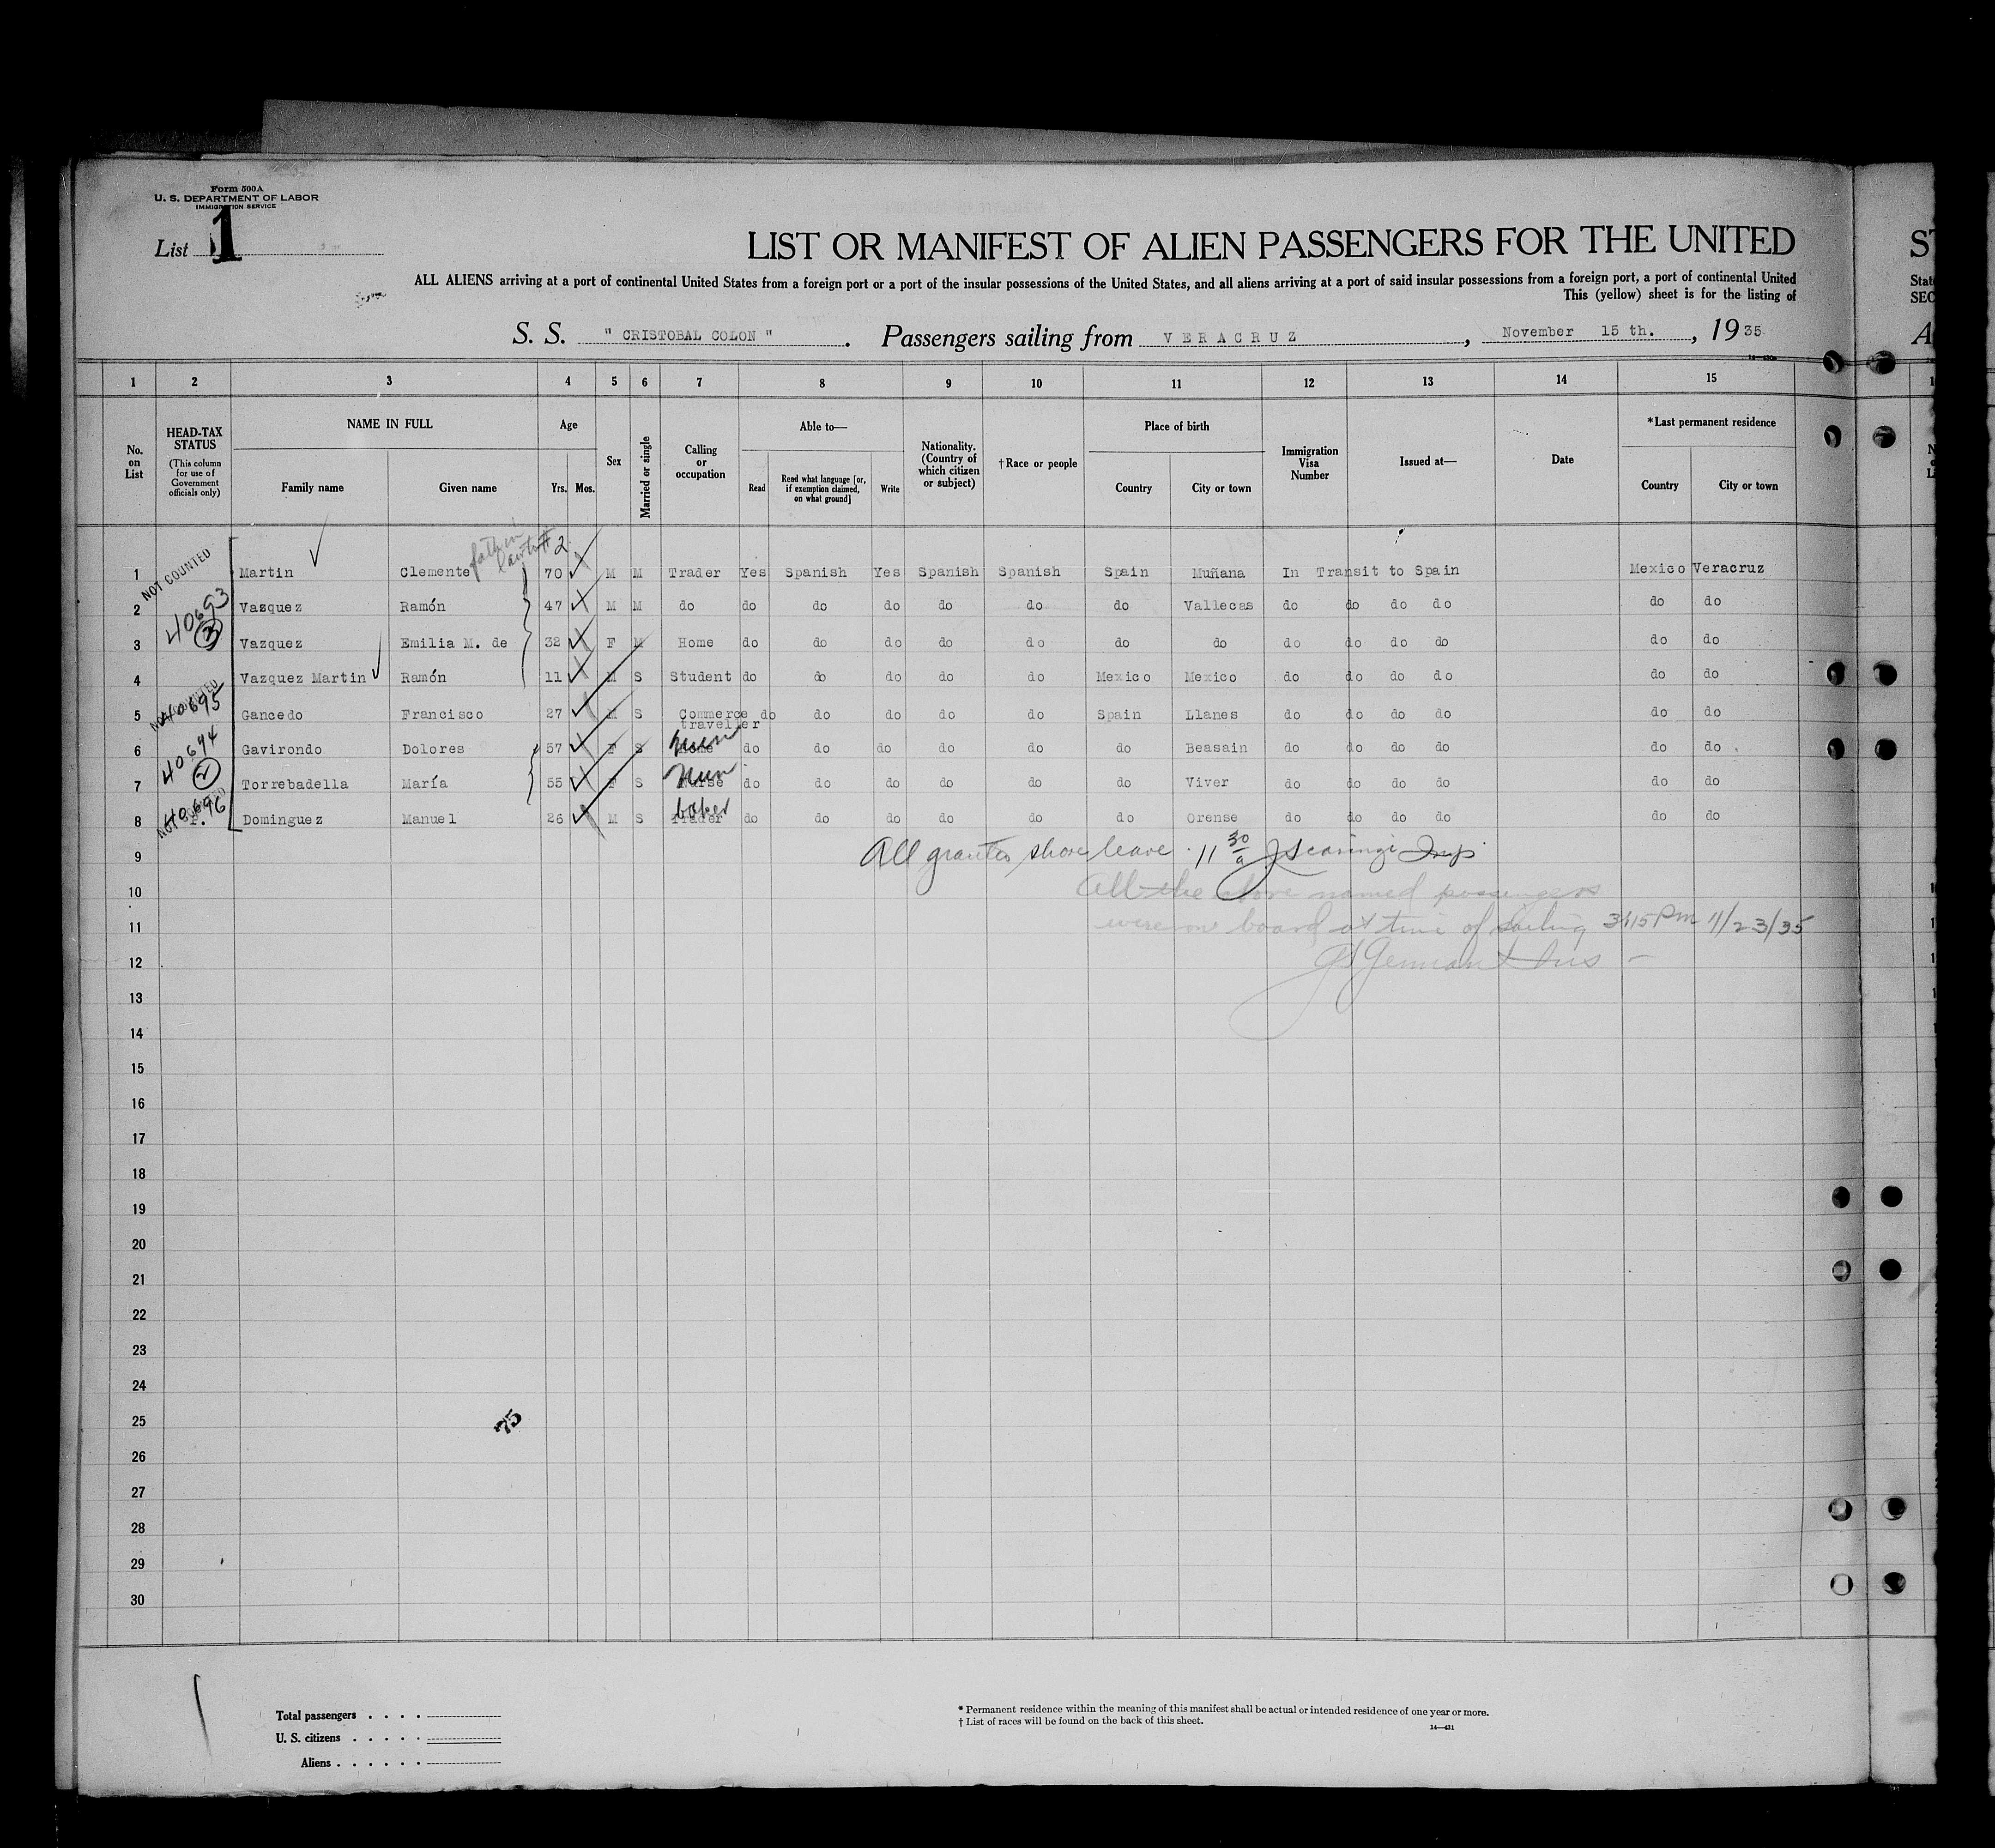 Form 500A
U. S. DEPARTMENT OF LABOR
IMMIGRATION SERVICE
List 1
LIST OR MANIFEST OF ALIEN PASSENGERS FOR THE UNITED
ALL ALIENS arriving at a port of continental United States from a foreign port or a port of the insular possessions of the United States, and all aliens arriving at a port of said insular possessions from a foreign port, a port of continental United
This (yellow) sheet is for the listing of
S. S. " CRISTOBAL COLON " . Passengers sailing from VERACRUZ , November 15 th. , 19 35
1 2 3 4 5 6 7 8 9 10 11 12 13 14 15
No. on List
HEAD-TAX STATUS (This column for use of Government officials only)
NAME IN FULL
Family name Given name
Age Yrs. Mos.
Sex
Married or single
Calling or occupation
Able to—
Read Read what language [or, if exemption claimed, on what ground] Write
Nationality. (Country of which citizen or subject)
† Race or people
Place of birth
Country City or town
Immigration Visa Number
Issued at—
Date
* Last permanent residence
Country City or town
father in law to # 2
1 NOT COUNTED Martin Clemente 70 M M Trader Yes Spanish Yes Spanish Spanish Spain Muñana In Transit to Spain Mexico Veracruz
2 40693 Vazquez Ramón 47 M M do do do do do do do Vallecas do do do do do do
3 3 Vazquez Emilia M. de 32 F M Home do do do do do do do do do do do do do
4 Vazquez Martin Ramón 11 M S Student do do do do do Mexico Mexico do do do do do do
5 NOT COUNTED 40695 Gancedo Francisco 27 M S Commerce traveller do do do do do Spain Llanes do do do do do do
6 40694 Gavirondo Dolores 57 F S Home Nun do do do do do do Beasain do do do do do do
7 2 Torrebadella María 55 F S Nurse Nun do do do do do do Viver do do do do do do
8 40696 Dominguez Manuel 26 M S Trader baker do do do do do do Orense do do do do do do
9 All granted shore leave 11 30/a Scaringi Insp
10 All the above named passengers
11 were on board at time of sailing 3:15 Pm 11/23/35
12
13
14
15
16
17
18
19
20
21
22
23
24
25
75
26
27
28
29
30
Total passengers . . . .
U. S. citizens . . . . .
Aliens . . . . . .
* Permanent residence within the meaning of this manifest shall be actual or intended residence of one year or more.
† List of races will be found on the back of this sheet.
14—431